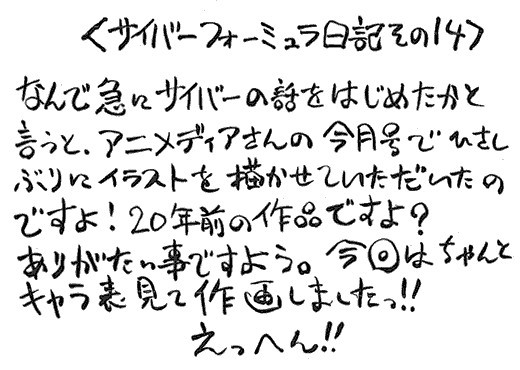 <サイバーフォーミュラ日記その14>
なんで急にサイバーの話をはじめたかと
言うと、アニメディアさんの今月号でひさし
ぶりにイラストを描かせていただいたの
ですよ!20年前の作品ですよ?
ありがたい事ですよう。今回はちゃんと
キャラ表見て作画しましたっ!!
えっへん!!